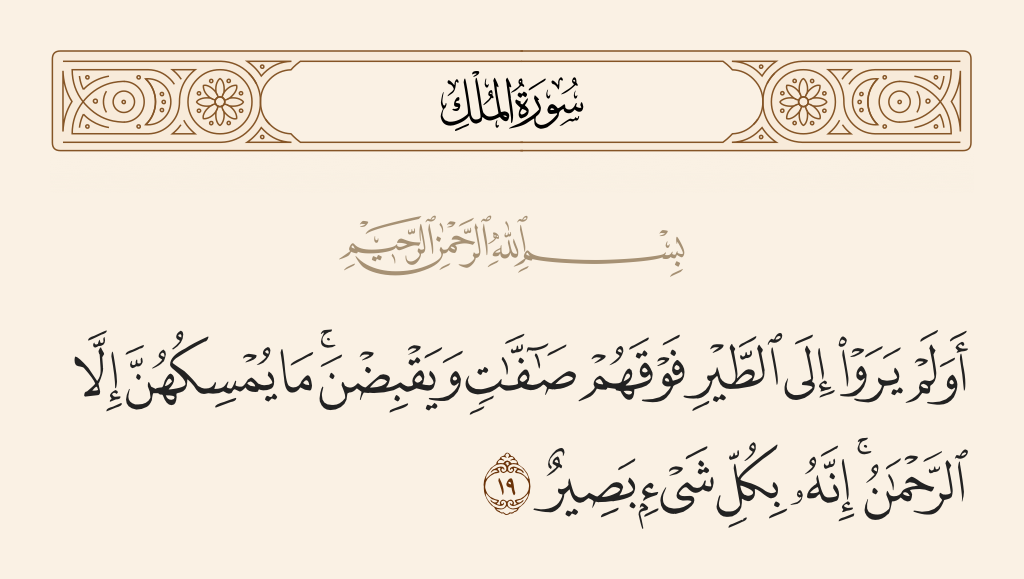 سُورَةُ الْمُلْكِ
بِسْمِ ٱللَّهِ ٱلرَّحْمَٰنِ ٱلرَّحِيمِ
أَوَلَمْ يَرَوْا۟ إِلَى ٱلطَّيْرِ فَوْقَهُمْ صَـٰٓفَّـٰتٍ وَيَقْبِضْنَ ۚ مَا يُمْسِكُهُنَّ إِلَّا
ٱلرَّحْمَـٰنُ ۚ إِنَّهُۥ بِكُلِّ شَىْءٍۭ بَصِيرٌ ١٩